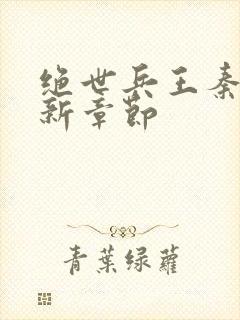 绝世兵王秦
新章节
青葉绿蘿